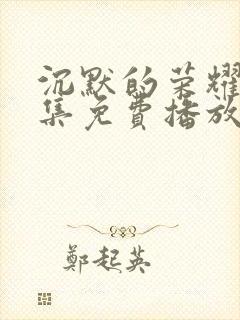 沉默的荣耀
集免費播放
鄭起英